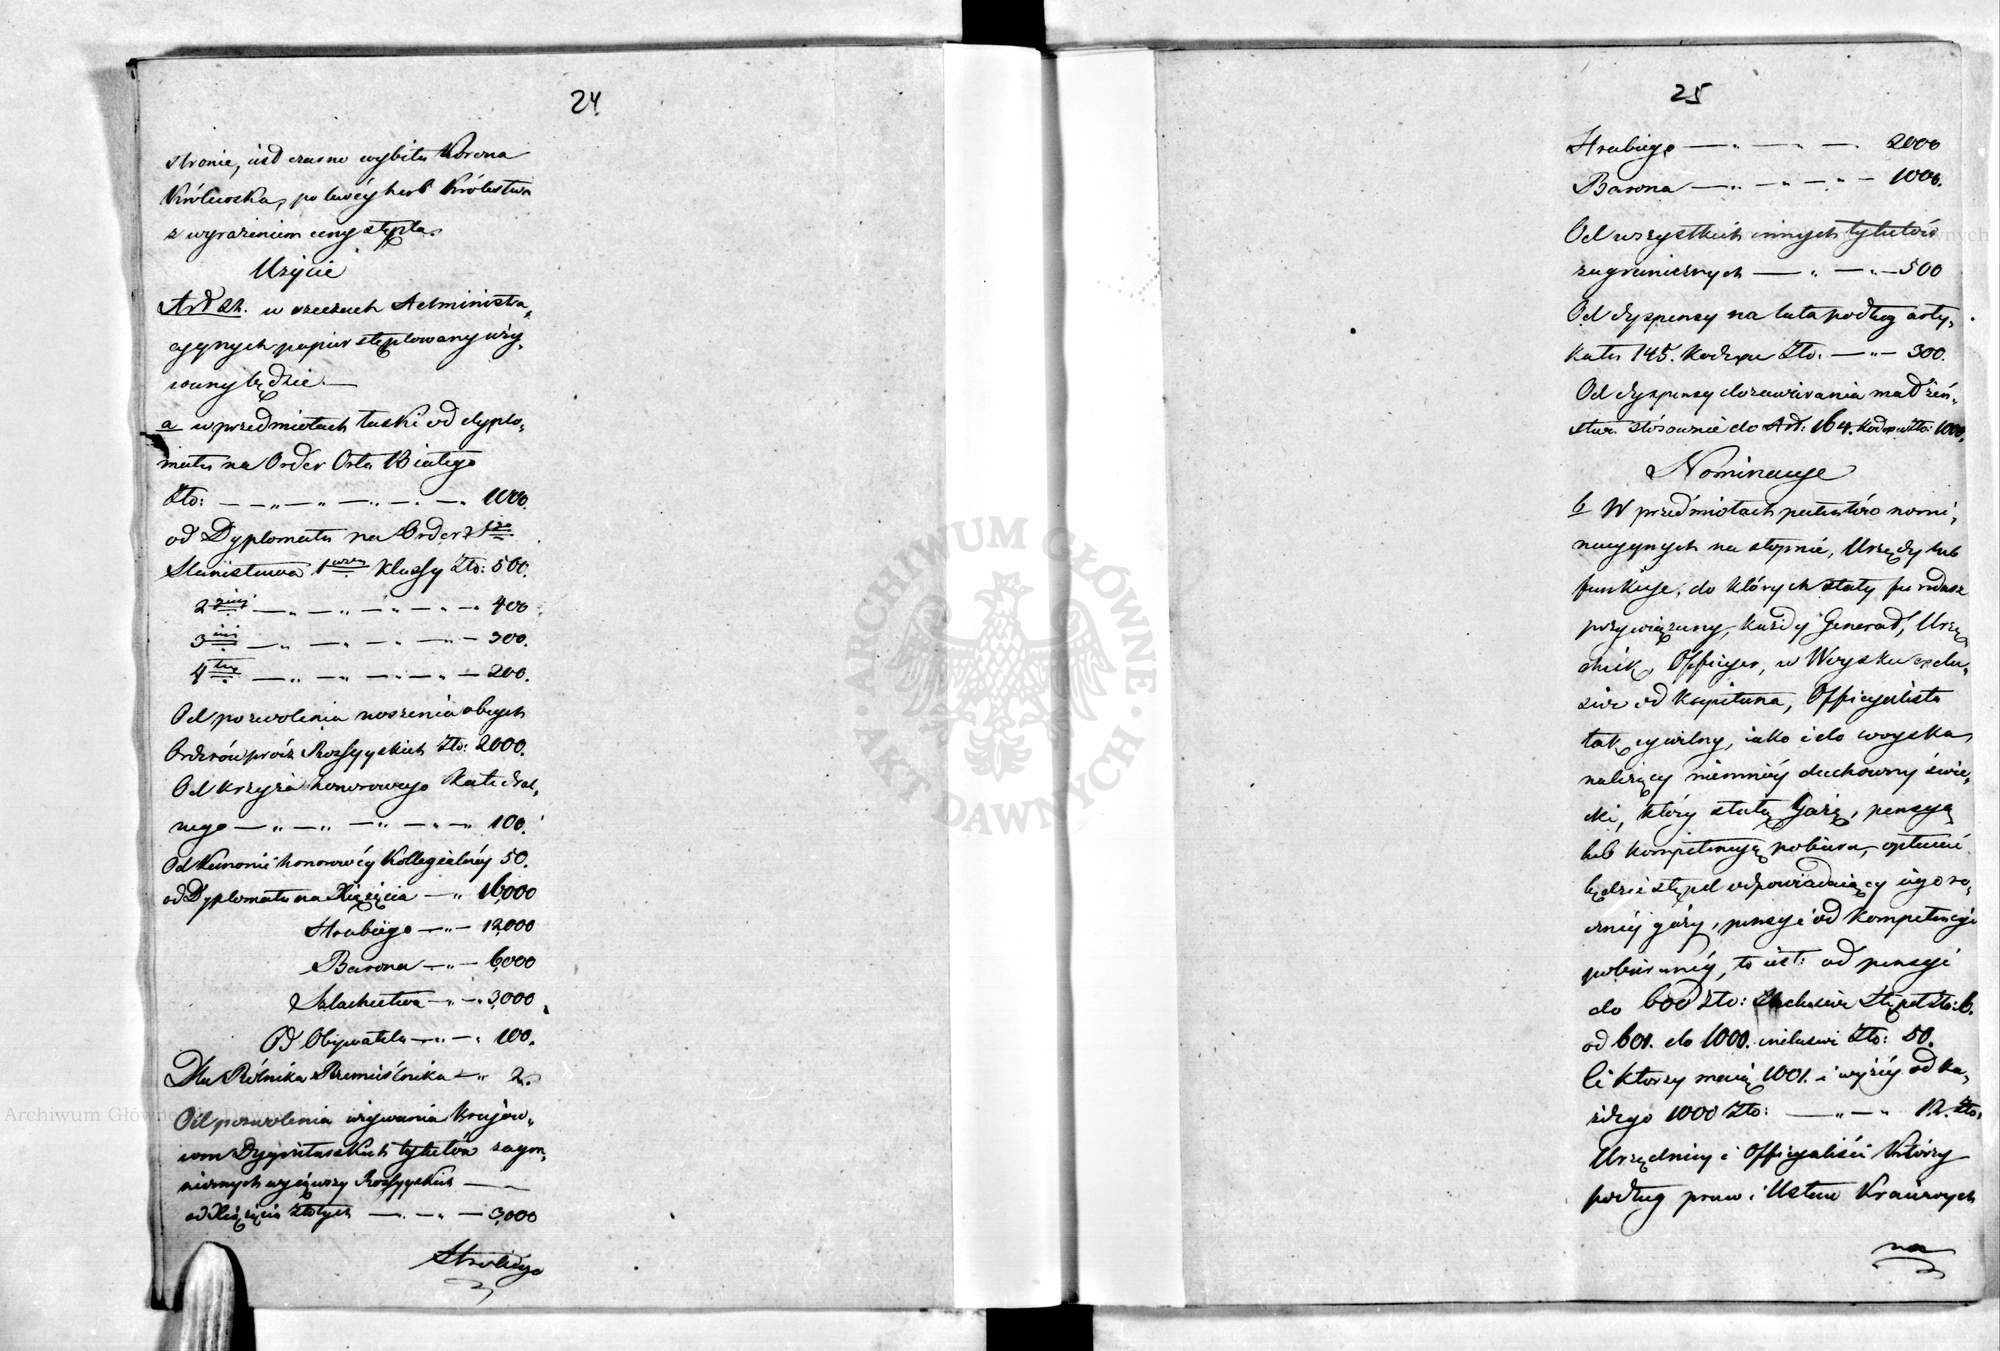 24.
stronie, iest czarno wybita Korona
Królewska, po lewéy herb Królestwa
z wyrażeniem ceny stępla.
Użycie
Art 24. w rzeczach Administra„
cyjnych papier stęplowany uży„
wany będzie. —
a w przedmiotach łaski od dyplo„
matu na Order Orła Białego
Zło: — — „ — „ — „ — „ — „ 1000.
od Dyplomatu na Order
Stanisława 1 klassy Zło: 500.
2 — „ — „ — „ — „ — „ 400
3 — „ — „ — „ — „ — 300.
4 — „ — „ — „ — „ — 200.
Od pozwolenia noszenia obcych
Orderów prócz Rossyyskich Zło: 2000.
Od krzyża honorowego Katedral„
nego — „ — „ — „ — „ — „ 100.
Od Kanonii honorowéy Kollegialnéy 50.
od Dyplomatu na Xiążęcia — „ 16,000
Hrabiego — „ — 12,000
Barona — „ — 6,000
Szlachectwa — „ — 3,000
Od Obywatela — „ — „ 100.
Dla Rólnika Rzemieślnika — „ 2.
Od pozwolenia używania Krajow„
com Dygnitarskich tytułów zagra„
nicznych wyiąwszy Rossyyskich —
od Xiążęcia Złotych — „ — „ — 3,000
Hrabiego
25
Hrabiego — „ — „ — . 2000
Barona — „ — „ — „ — 1000.
Od wszystkich innych tytułów
zagranicznych — „ — „ — 500
Od dyspensy na lata podług arty„
kułu 145. Kodexu Zło: — „ — 300.
Od dyspensy do zawierania małżeń„
stw stósownie do Art: 164. Kodexu Zło: 1000.
Nominacye
b W przedmiotach patentów nomi„
nacyjnych na stopnie, Urzędy lub
funkcye, do których stały fundusz
przywiązany, każdy Generał, Urzę„
dnik, Officyer, w Woysku exclu„
sive od Kapitana, Officyalista
tak cywilny, iako i do woyska
należący niemniéy duchowny świe„
cki, który stałą Gażę, pensyą
lub kompetencyą pobiera, opłacać
będzie stępel odpowiadaiący iego ro„
cznéy gaży, pensyi od kompetencyi
pobieranéy, to iest: od pensyi
do 600 zło: inclusive Stępel zło: 6.
od 601. do 1000. inclusive Zło: 50.
Ci ktorzy maią 1001. i wyżéy od ka„
żdego 1000 Zło: — „ — „ 12. Zło:
Urzędnicy i Officyaliści którzy
podług praw i Ustaw Kraiowych
na
ARCHIWUM GŁÓWNE
AKT DAWNYCH